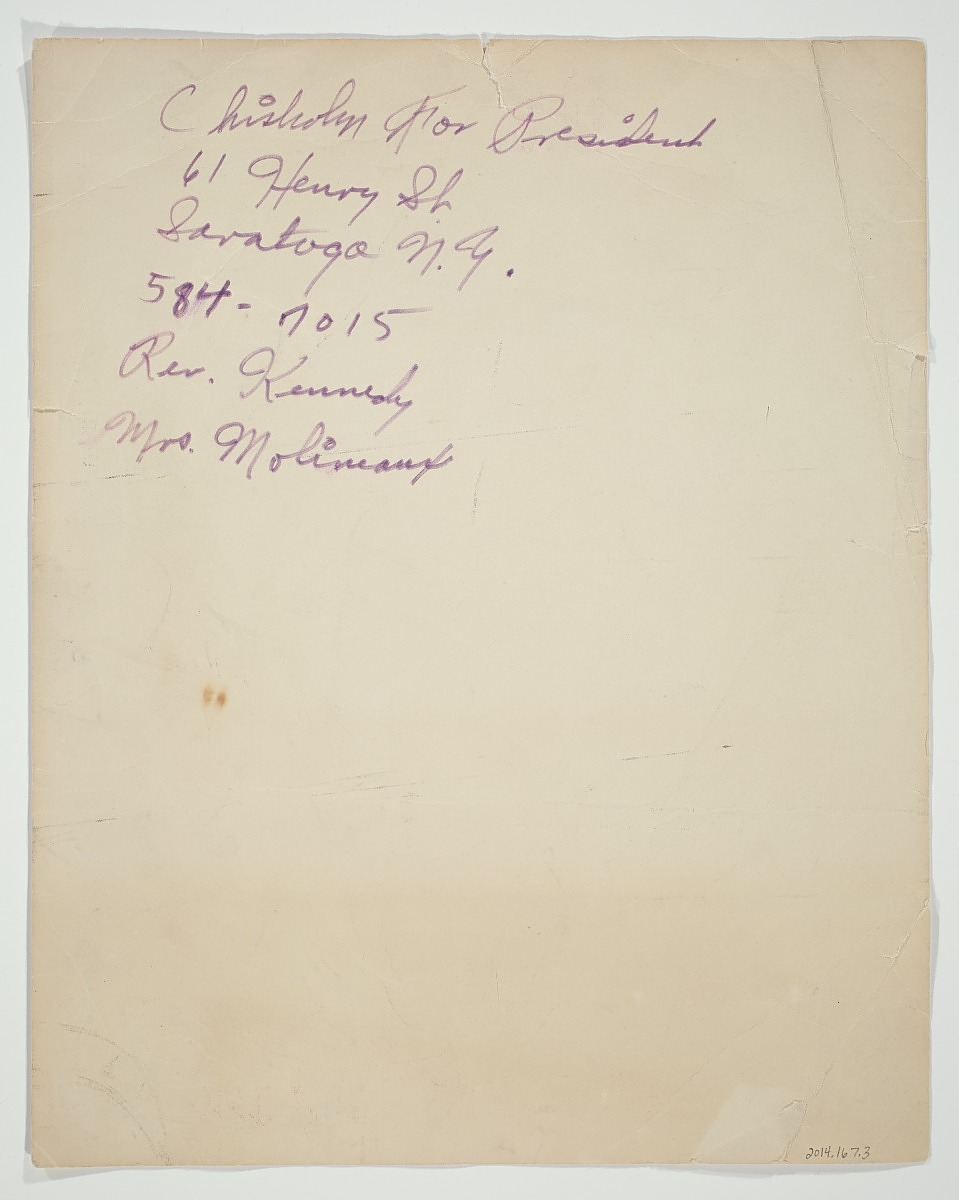 Chisholm For President
61 Henry St
Saratoga N.Y.
584-7015
Rev. Kennedy
Mrs. Molineaux
2014.167.3